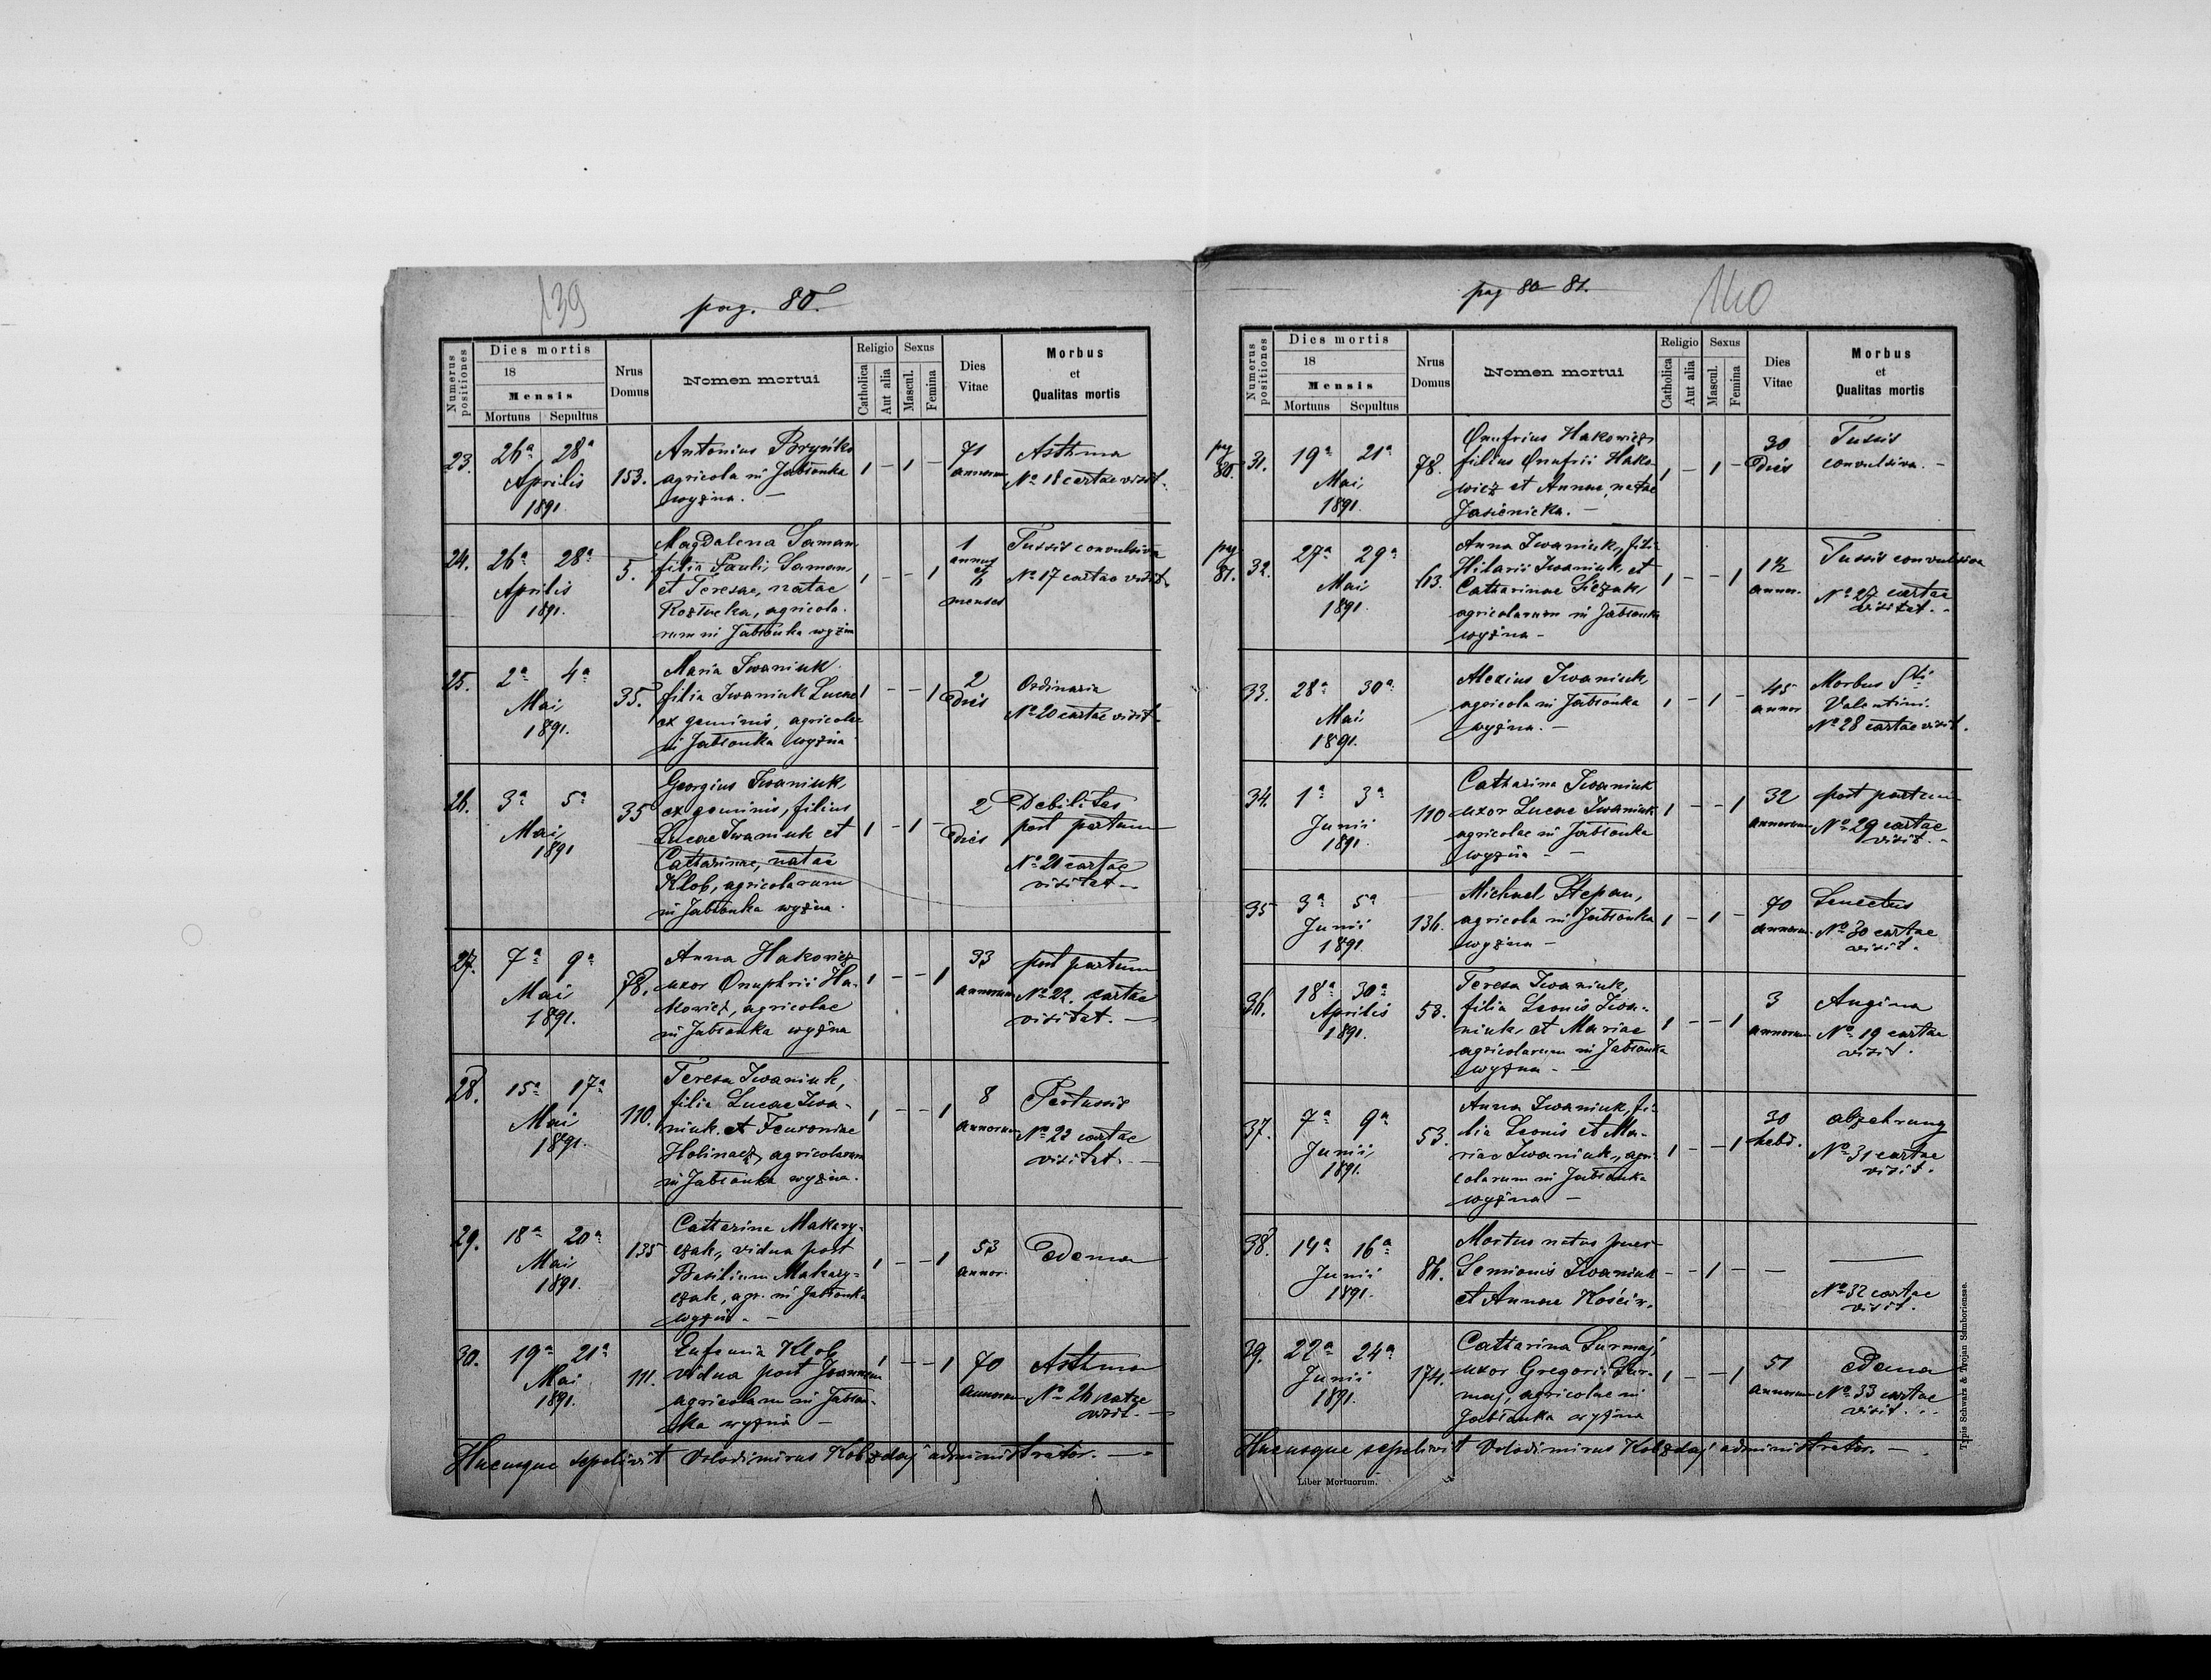 139
pag. 80.
Numerus positiones
Dies mortis
18
Mensis
Mortuus Sepultus
Nrus Domus
Nomen mortui
Religio
Catholica
Aut alia
Sexus
Mascul.
Femina
Dies Vitae
Morbus
et
Qualitas mortis
23. 26ª 28ª
Aprilis
1891.
153.
Antonius
agricola in Jabłonka
wyżna. —
1 - 1 -
71
annorum
Asthma
Nº 18 cartae visit.
24. 26ª 28ª
Aprilis
1891.
5.
Magdalena Saman
filia Pauli Saman
et Teresae, natae
Roztucka, agricola-
rum in Jabłonka wyżna
1 - - 1
1
annus
et
6
menses
Tussis convulsiva
Nº 17 cartae visitat.
25. 2ª 4ª
Mai
1891.
35.
Maria Iwaniuk
filia Iwaniuk Lucae
ex geminis, agricolae
in Jabłonka wyżna
1 - - 1
2
dies
Ordinaria
Nº 20 cartae visit.
26. 3ª 5ª
Mai
1891
35
Georgius Iwaniuk,
ex geminis, filius
Lucae Iwaniuk et
Catharinae, natae
Klob, agricolarum
in Jabłonka wyżna.
1 - 1 -
2
dies
Debilitas
post partum
Nº 21 cartae
visitat. -
27. 7ª 9ª
Mai
1891.
78.
Anna Hakowicz
uxor Onuphrii Ha-
kowicz, agricolae
in Jabłonka wyżna
1 - - 1
33
annorum
post partum
Nº 22. cartae
visitat. —
28. 15ª 17ª
Mai
1891.
110.
Teresa Iwaniuk,
filia Lucae Iwa-
niuk et Feuroniae
Holinacz, agricolarum
in Jabłonka wyżna.
1 - - 1
8
annorum
Pertussis
Nº 23 cartae
visitat. —
29. 18ª 20ª
Mai
1891.
135
Catharina Makary-
czak, vidua post
Basilium Makary-
czak, agr. in Jabłonka
wyżna. -
1 - - 1
53
annor.
Edema
30. 19ª 21ª
Mai
1891.
111.
Eufemia Klob
vidua post Joannem
agricolam in Jabłon-
ka wyżna —
1 - - 1
70
annorum
Asthma
Nº 26 catze
visit. —
Hucusque sepelivit Volodimirus Kobzdaj administrator. —
pag 80 81.
140
Numerus positiones
Dies mortis
18
Mensis
Mortuus Sepultus
Nrus Domus
Nomen mortui
Religio
Catholica
Aut alia
Sexus
Mascul.
Femina
Dies Vitae
Morbus
et
Qualitas mortis
pag 80.
31. 19ª 21ª
Mai
1891.
78.
Onufrius Hakowicz
filius Onufrii Hako-
wicz et Annae, natae
Jasienicka. —
1 - 1 -
30
dies
Tussis
convulsiva. -
pag 81.
32. 27ª 29ª
Mai
1891.
Anna Iwaniuk, filia
Hilarii Iwaniuk, et
Catharinae
agricolarum in Jabłonka
wyżna -
1 - - 1
1½
annor.
Tussis convulsiva
Nº 27 cartae
visitat. -
33. 28ª 30ª
Mai
1891.
Alexius Iwaniuk
agricola in Jabłonka
wyżna. —
1 - 1 -
45
annor
Morbus Sti
Valentini.
Nº 28 cartae visit.
34. 1ª 3ª
Junii
1891.
110
Catharina Iwaniuk
uxor Lucae Iwaniuk
agricolae in Jabłonka
wyżna - -
1 - - 1
32
annorum
post partum
Nº 29 cartae
visit. -
35 3ª 5ª
Junii
1891.
136.
Michael Stepan,
agricola in Jabłonka
wyżna -
1 - 1 -
70
annorum.
Senectus
Nº 30 cartae
visit.
36. 18ª 30ª
Aprilis
1891.
53.
Teresa Iwaniuk,
filia Leonis Iwa-
niuk, et Mariae
agricolarum in Jabłonka
wyżna - -
1 - - 1
3
annorum
Angina
Nº 19 cartae
visit.
37. 7ª 9ª
Junii
1891.
53.
Anna Iwaniuk, fi-
lia Leonis et Ma-
riae Iwaniuk, agri-
colarum in Jabłonka
wyżna —
1 - - 1
30
hebd.
abzehrung
Nº 31 cartae
visit.
38. 14ª 16ª
Junii
1891.
86.
Mortus natus puer
Semionis Iwaniuk
et Annae Kościw.
- - 1 - —
—
Nº 32 cartae
visit.
39. 22ª 24ª
Junii
1891.
174.
Catharina Surmaj
uxor Gregorii Sur-
maj, agricolae in
Jabłonka wyżna
1 - - 1
51
annorum
Edema
Nº 33 cartae
visit. -
Hucusque sepelivit Volodimirus Kobzdaj administrator. —
Liber Mortuorum.
Typis Schwarz & Trojan Samboriensae.